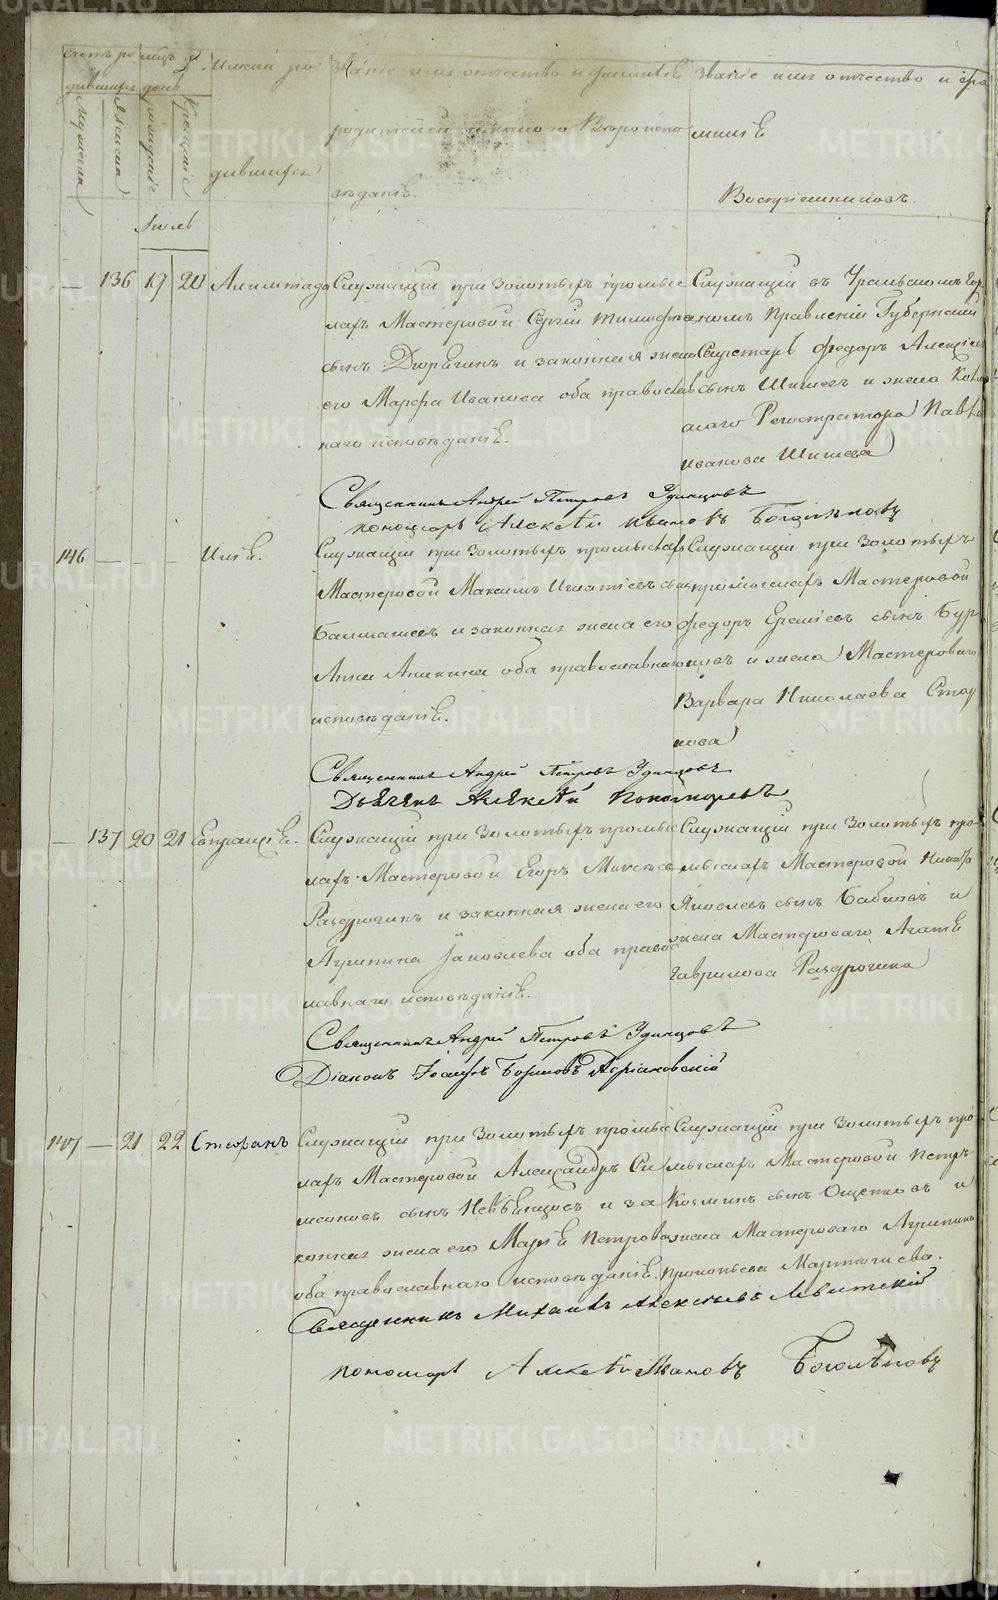 METRIKI.GASO-URAL.RU
Счетъ ро
дившихся
мужеска
женска
мцъ и
день
рожденiе
крещенiе
Имена ро
дившихся
Званiе имя отчество и фамилiѣ
родителей и какого Вѣроиспо
вѣданiѣ.
Званiе имя отчество и фа
милiѣ
Воспрiемниковъ.
Iюль
— 136 19 20 Алимпiада
Служащiй при Золотыхъ промыс
лахъ Мастеровой Сергiй Тимофеевъ
сынъ Дюрягинъ и законная жена
его Марфа Иванова оба православ
наго исповѣданiѣ.
Служащiй въ Уральскомъ Гор
номъ Правленiи Губернскiй
Секретарь Федоръ Алексѣев
сынъ Шишевъ и жена Коллеж
скаго Регистратора Павла
Иванова Шишева
Священникъ Андрей Петровъ Удинцовъ
пономарь Алексѣй Ивановъ Боголѣповъ
146 — — — Илiѣ.
Служащiй при Золотыхъ промыслахъ
Мастеровой Максимъ Игнатiевъ сынъ
Балташевъ и законная жена его
Анна Аникина оба православнаго
исповѣданiѣ.
Служащiй при Золотыхъ
промыслахъ Мастеровой
Федоръ Ермiевъ сынъ Бур
цовъ и жена Мастероваго
Варвара Николаева Стар
кова
Священникъ Андрей Петровъ Удинцовъ
Дьячекъ Алексѣй Пономаревъ
— 137 20 21 Евпраксiѣ.
Служащiй при Золотыхъ промыс
лахъ Мастеровой Егоръ Моисеевъ
Раздрогинъ и законная жена его
Агрипина Яковлева оба правос
лавнаго исповѣданiѣ.
Служащiй при Золотыхъ про-
мыслахъ Мастеровой Никита
Яковлевъ сынъ Бабковъ и
жена Мастероваго Агатiѣ
Гаврилова Раздрогина
Священникъ Андрей Петровъ Удинцовъ
Дiаконъ Iоаннъ Борисовъ Адрiановскiй
147 — 21 22 Стефанъ
Служащiй при Золотыхъ промыс
лахъ Мастеровой Александръ Си
меоновъ сынъ Невѣнцовъ и за
конная жена его Марiѣ Петрова
оба православнаго исповѣданiѣ.
Служащiй при Золотыхъ про
мыслахъ Мастеровой Петръ
Козминъ сынъ Ощепковъ и
жена Мастероваго Агрипина
Прокопьева Мартюшева.
Священникъ Михаилъ Алексѣевъ Левитскiй
пономарь Алексѣй Ивановъ Боголѣповъ